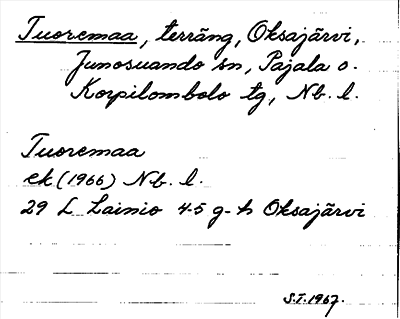 Tuoremaa, terräng, Oksajärvi,
Junosuando sn, Pajala o.
Korpilombolo tg, Nb. l.
Tuoremaa
ek (1966) Nb. l.
29 L Lainio 4-5 g-h Oksajärvi
S.T. 1967.